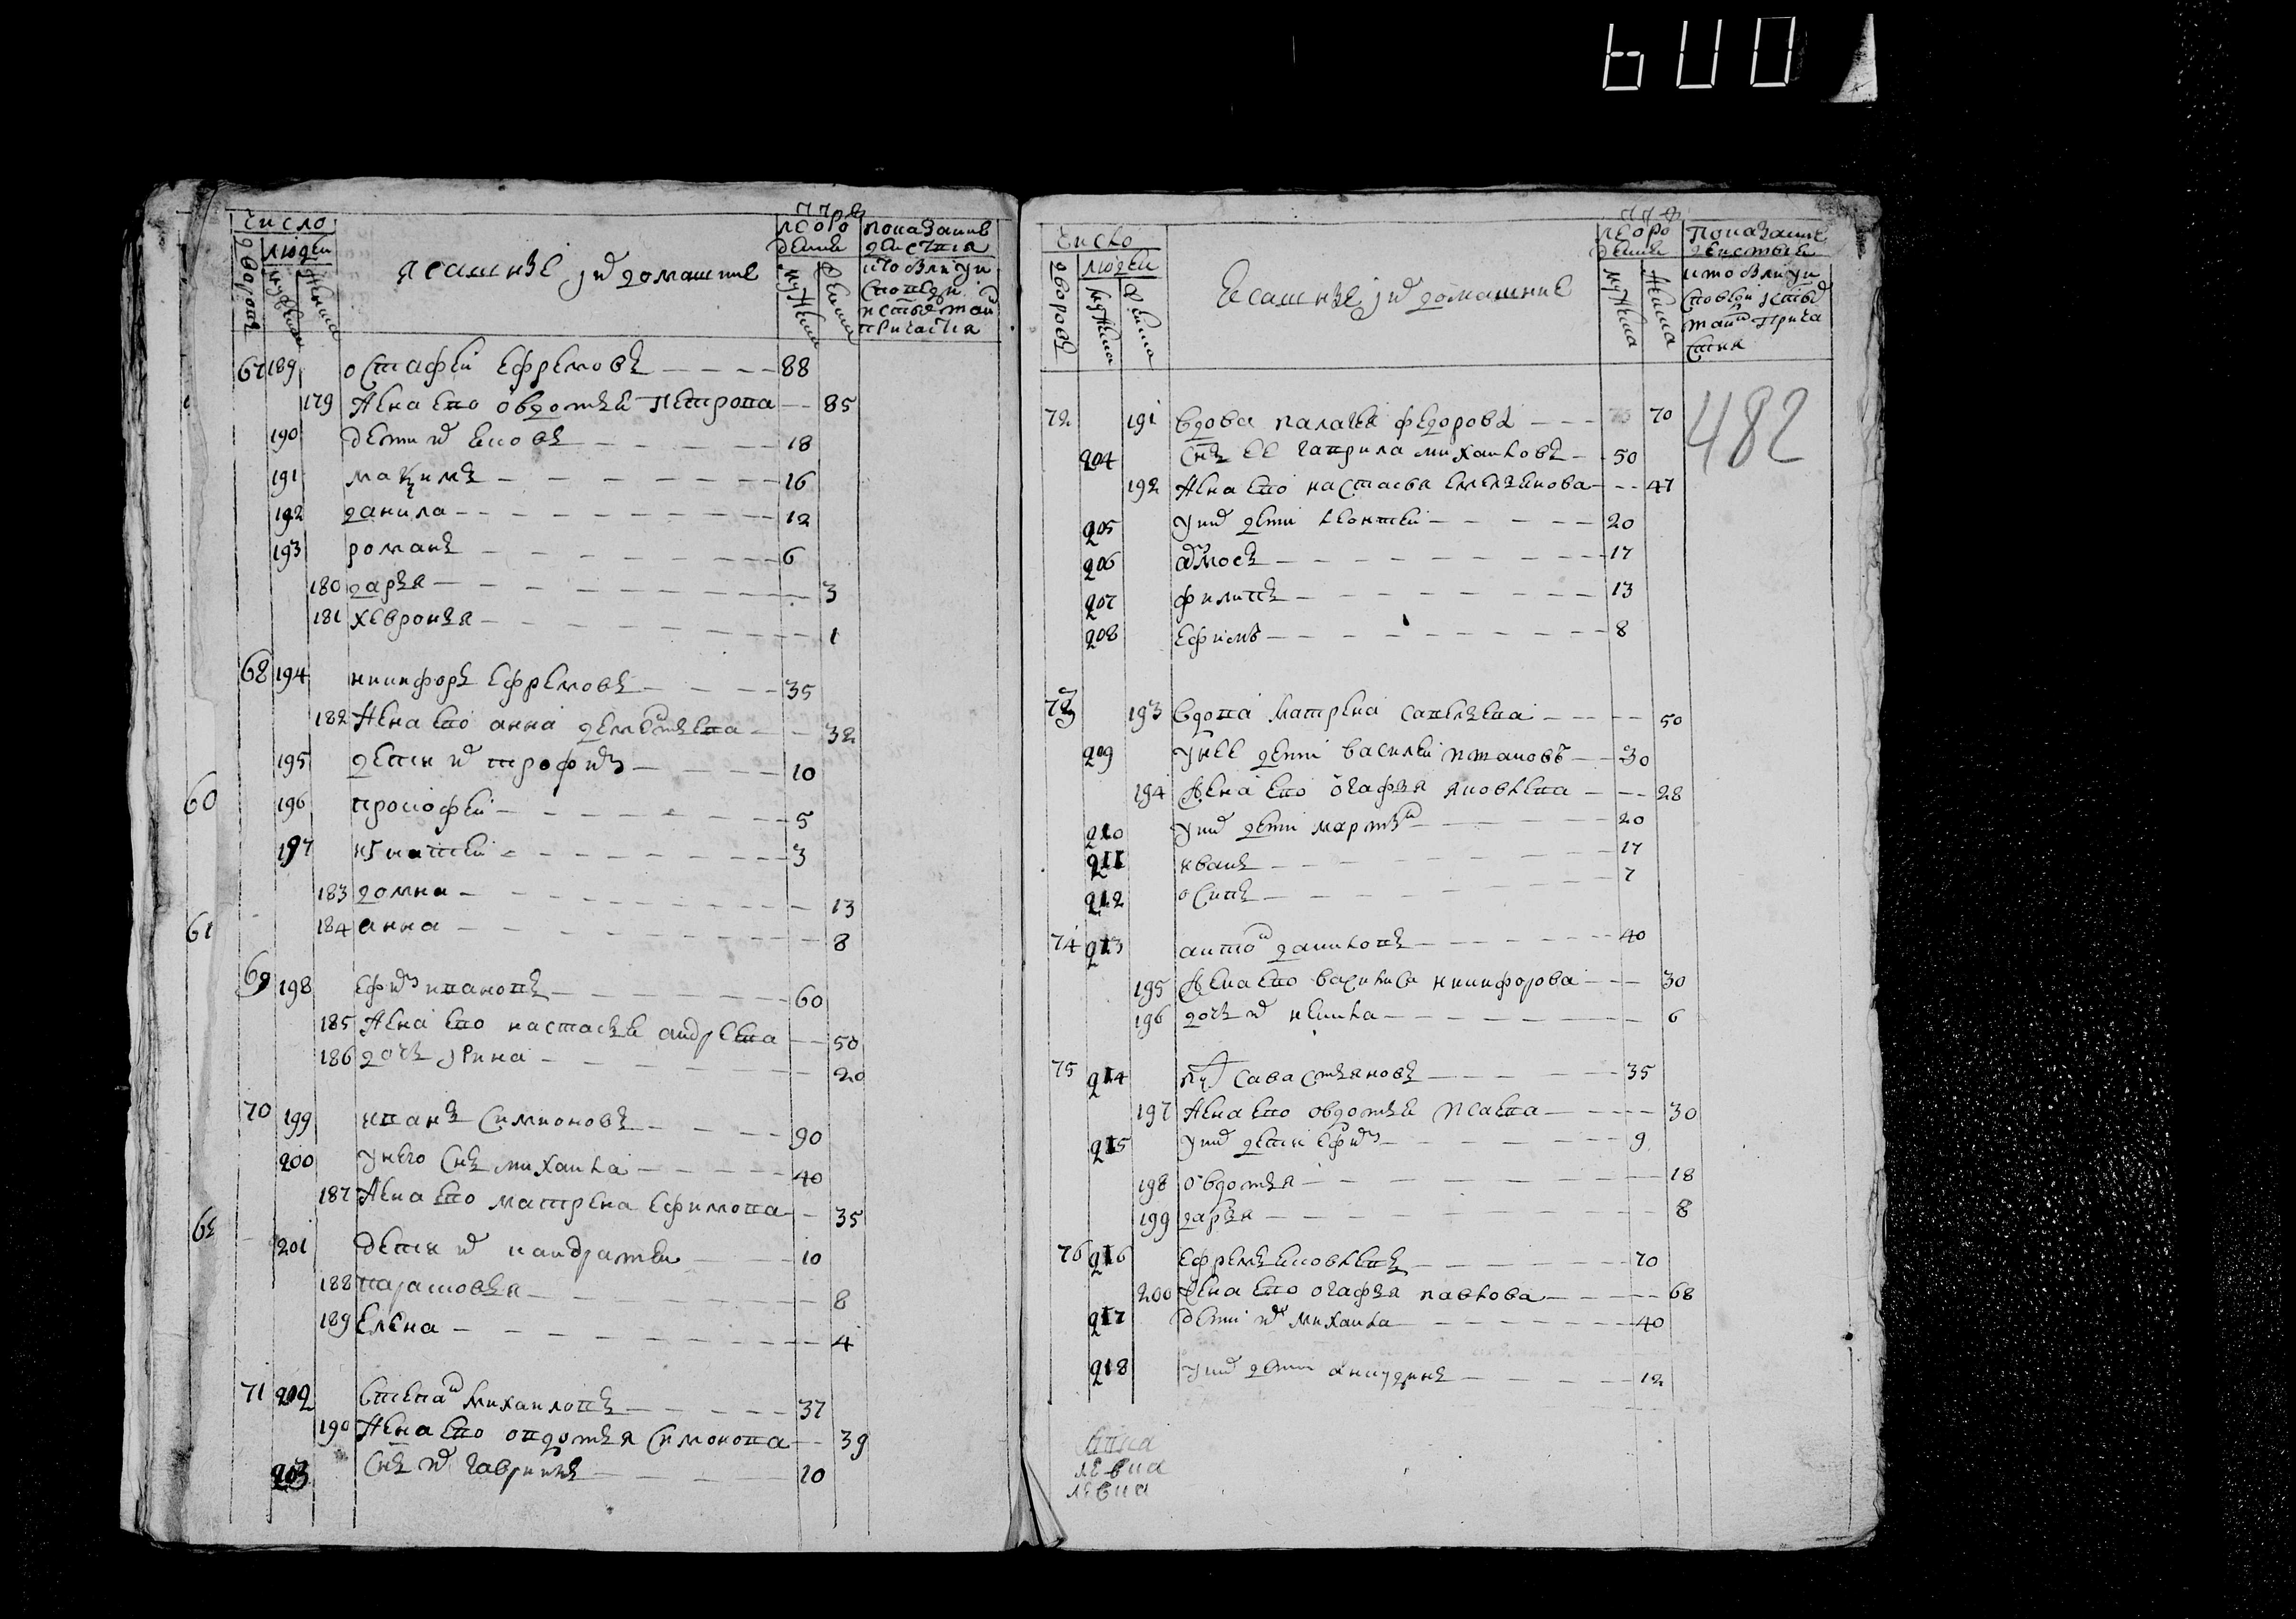 600
число
людей
дворовъ
мужеска
женска
ясашнѣе и их домашние
от рожде
ние
мужеска
женска
показание
действия
кто были у
споведи
и стых таин
причастия
67 189 остафей ефремовъ 88
179 жена ево овдотья петрова 85
190 дети их яковъ 18
191 маѯимъ 16
192 данила 12
193 романъ 6
180 дарья 3
181 хевронья 1
68 194 никифоръ ефремовъ 35
182 жена ево анна дементьева 32
195 дети их трофимъ 10
60 196 прокофей 5
197 игнатей 3
183 домна 13
61 184 анна 8
69 198 ефимъ ивановъ 60
185 жена ево настасья андреева 50
186 дочь ирина 20
70 199 иванъ симионовъ 90
200 у него снъ михаила 40
187 жена ево матрена ефимова 35
62 201 дети их кандратей 10
188 парасковья 8
189 елена 4
71 202 степан михаиловъ 37
190 жена ево овдотья симонова 39
203 снъ их гаврила 10
число
людей
дворовъ
мужеска
женска
ясашнѣе и их домашние
от рожде
ние
мужеска
женска
показание
действие
кто были у
споведи и стых
таин прича
стия
482
72 191 вдова палагея федорова 70
204 снъ ее гаврила михаиловъ 50
192 жена ево настасья емельянова 47
205 у них дети леонтей 20
206 амосъ 17
207 филипъ 13
208 ефимъ 8
73 193 вдова матрена савельева 50
209 у нее дети василей ивановъ 30
194 жена ево огафья яковлева 28
210 у них дети мартын 20
211 иванъ 17
212 осипъ 7
74 213 антон даниловъ 40
195 жена ево василиса никифорова 30
196 дочь их некила 6
75 214 савастьяновъ 35
197 жена ево овдотья исаева 30
215 у них дети ефим 9
198 овдотья 18
199 дарья 8
76 216 ефремъ яковлевъ 70
200 жена ево огафья павлова 68
217 дети их михаила 40
218 у них дети аникудинъ 12
левка
левка